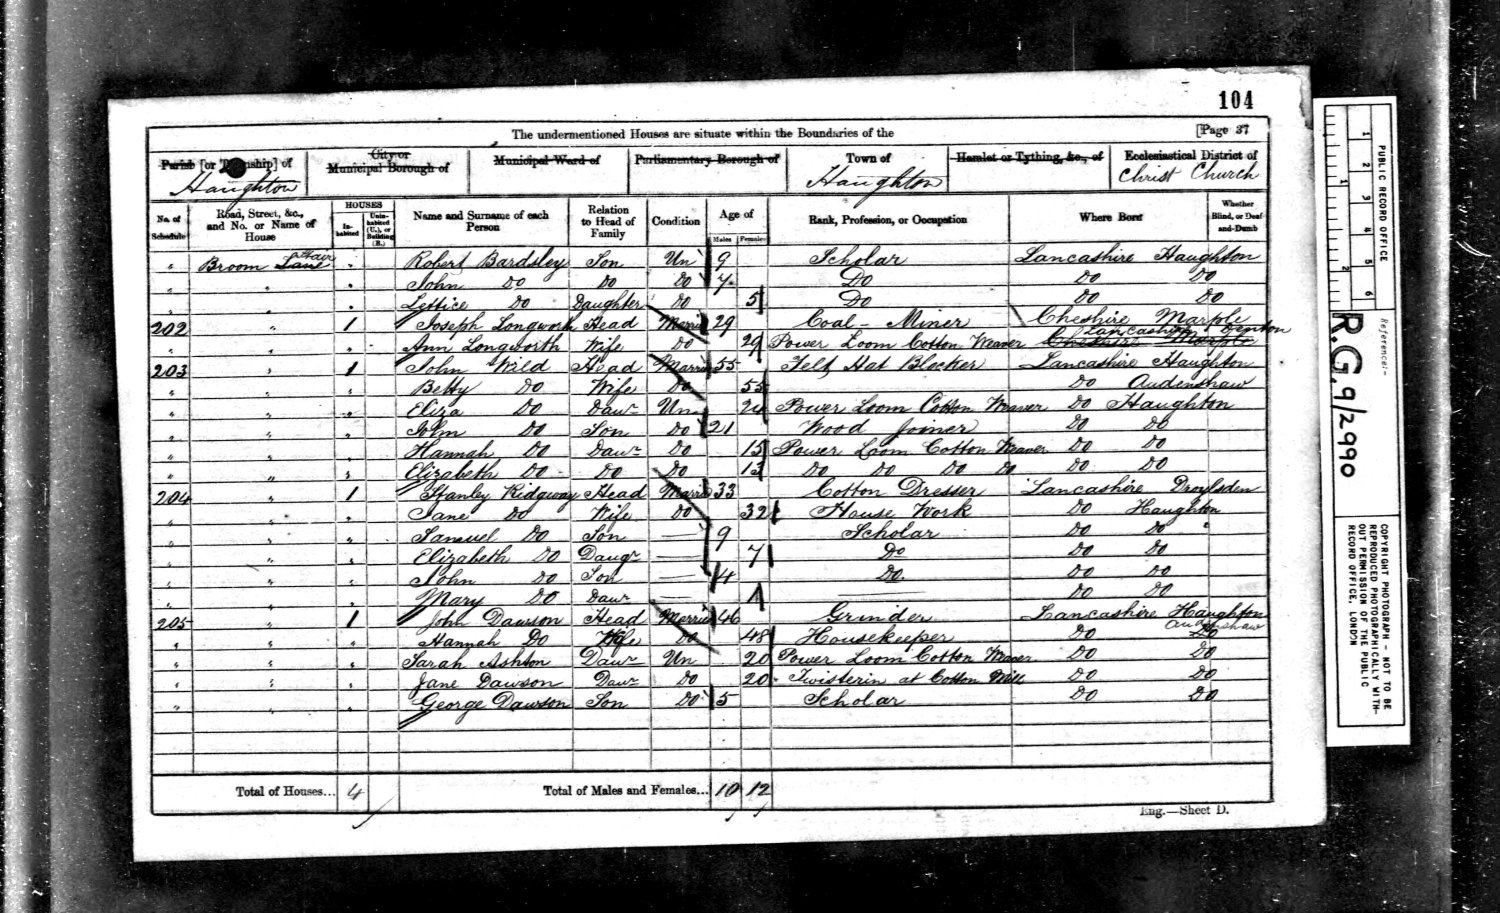 104
The undermentioned Houses are situate within the Boundaries of the [Page 37
Parish [or Township] of City or Municipal Borough of Municipal Ward of Parliamentary Borough of Town of Hamlet or Tything, &c., of Ecclesiastical District of
Haughton Haughton Christ Church
No. of Schedule Road, Street, &c., and No. or Name of House HOUSES Inhabited Uninhabited (U.), or Building (B.) Name and Surname of each Person Relation to Head of Family Condition Age of Males Females Rank, Profession, or Occupation Where Born Whether Blind, or Deaf-and-Dumb
" Broom Lane " Robert Bardsley Son Un 9 Scholar Lancashire Haughton
" " " John Do Do Do 7 Do Do Do
" " " Lettice Do Daughter Do 5 Do Do Do
202 " 1 Joseph Longworth Head Married 29 Coal - Miner Cheshire Marple
" " " Ann Longworth Wife Do 29 Power Loom Cotton Weaver Cheshire Marple Lancashire Denton
203 " 1 John Wild Head Married 55 Felt Hat Blocker Lancashire Haughton
" " " Betty Do Wife Do 55 Do Audenshaw
" " " Eliza Do Dawr Un 24 Power Loom Cotton Weaver Do Haughton
" " " John Do Son Do 21 Wood Joiner Do Do
" " " Hannah Do Dawr Do 15 Power Loom Cotton Weaver Do Do
" " " Elizabeth Do Do Do 13 Do Do Do Do Do Do
204 " 1 Stanley Ridgway Head Married 33 Cotton Dresser Lancashire Droylsden
" " " Jane Do Wife Do 32 House Work Do Haughton
" " " Samuel Do Son — 9 Scholar Do Do "
" " " Elizabeth Do Daugr — 7 Do Do Do
" " " John Do Son — 4 Do. Do Do
" " " Mary Do Dawr — 1 — Do Do
205 " 1 John Dawson Head Married 46 Grinder Lancashire Haughton
" " " Hannah Do Wife Do 48 Housekeeper Do Do Audenshaw
" " " Sarah Ashton Dawr Un 20 Power Loom Cotton Weaver Do Do
" " " Jane Dawson Dawr Do 20 Twisterin at Cotton Mill Do Do
" " " George Dawson Son Do 5 Scholar Do Do
Total of Houses... 4 Total of Males and Females... 10 12
Eng.—Sheet D.
1 2 3 4 5 6
1 2
PUBLIC RECORD OFFICE
Reference:-
R.G. 9/2990
COPYRIGHT PHOTOGRAPH - NOT TO BE
REPRODUCED PHOTOGRAPHICALLY WITH-
OUT PERMISSION OF THE PUBLIC
RECORD OFFICE, LONDON